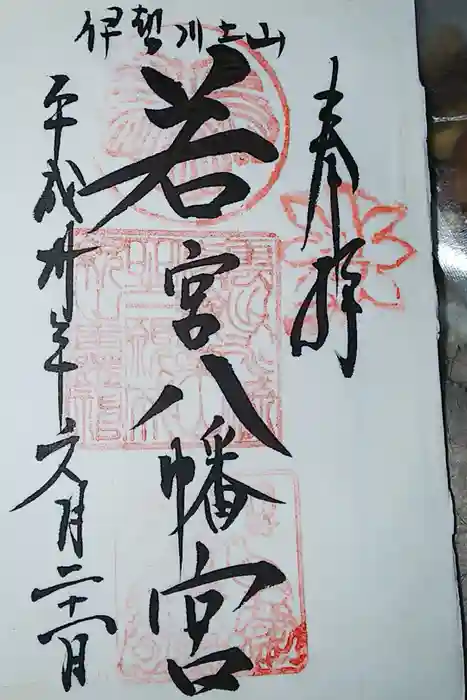 奉拝
伊勢川上山
若宮八幡宮
平成卅年六月二十一日